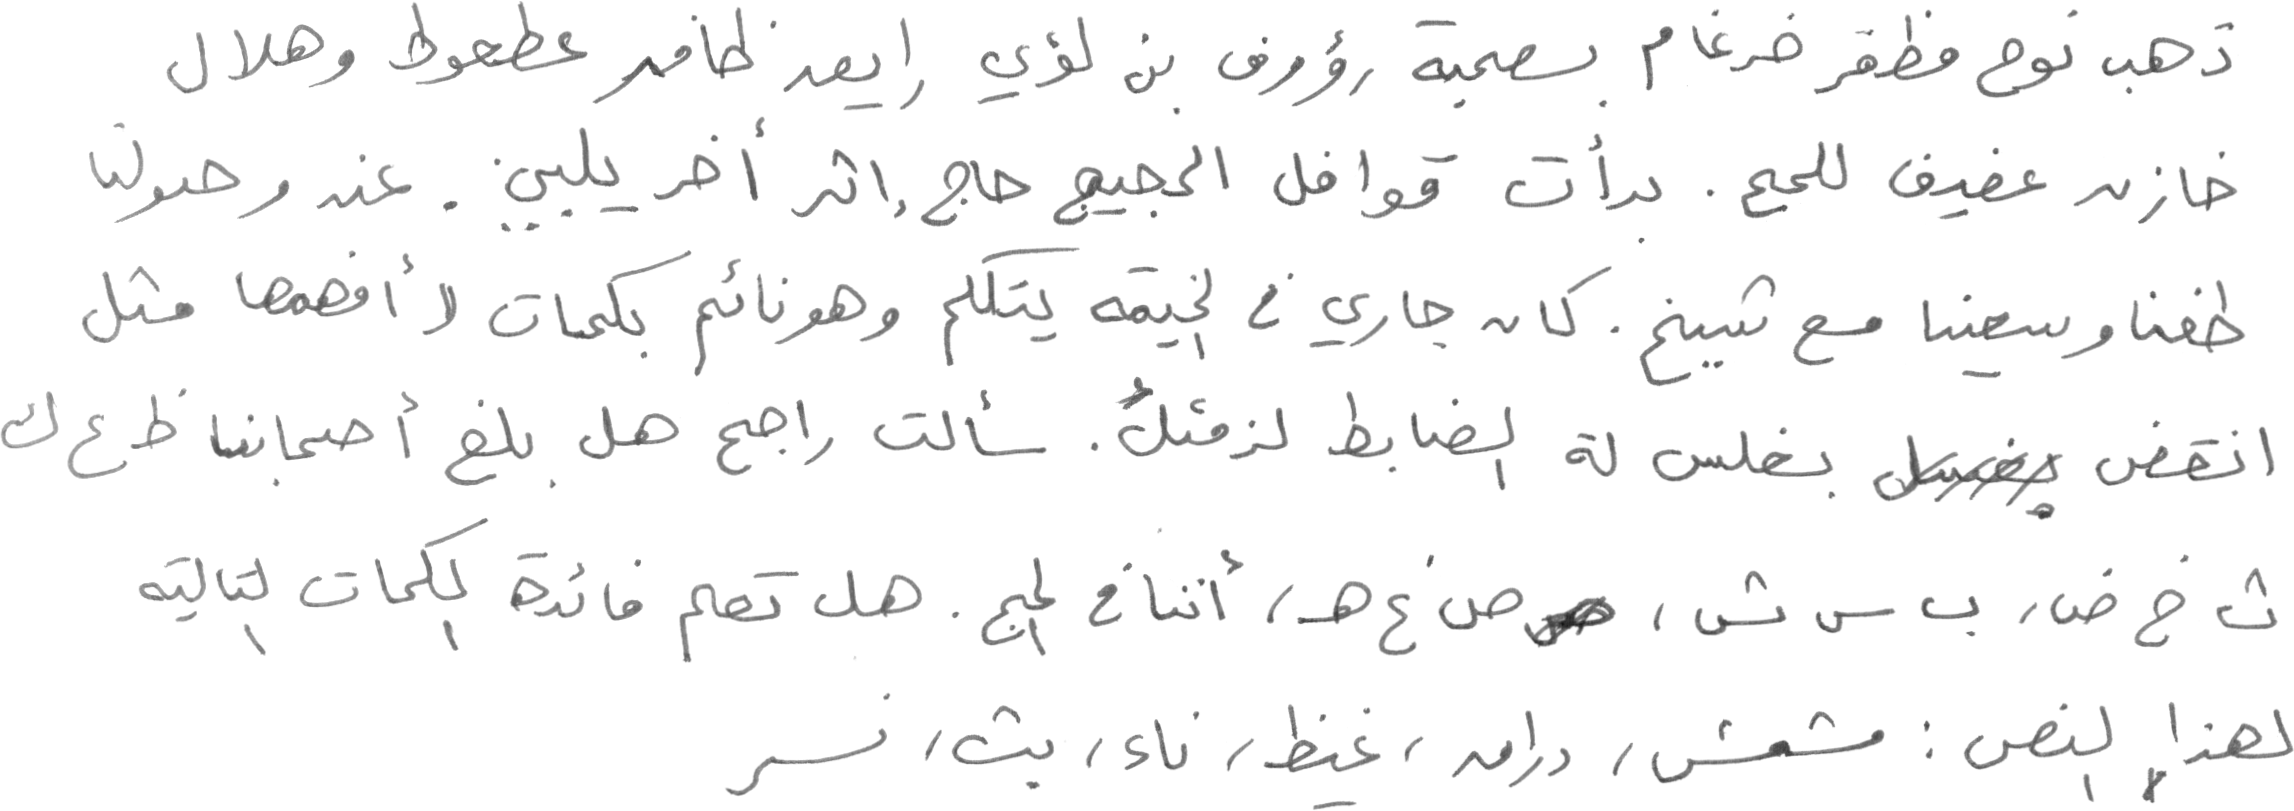 ذهب نوح مظفر ضرغام بصحبة رؤوف بن لؤي رايعد ظافر عطعوط وهلال
خازن عفيف للحج. بدأت قوافل الحجيج حاج إثر أخر يلبي. عند وصولنا
طفنا وسعينا مع شيخ. كان جاري في الخيمة يتكلم وهو نائم بكلمات لا أفهمها مثل
انقض بغلس له الضابط لزمتلُ. سألت راجح هل بلغ أصحابنا ظ ع ك
ث خ ض، ب س ش، ص غ هـ، أثناء الحج. هل تعلم فائدة الكلمات التالية
لهذا النص: مشمش، دراق، غيظ، ناء، بث، نسر